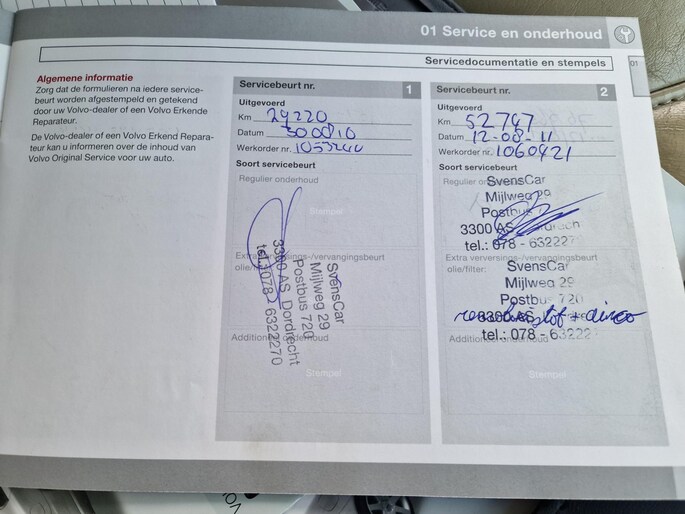 01 Service en onderhoud
Servicedocumentatie en stempels
01
Algemene informatie
Zorg dat de formulieren na iedere service-
beurt worden afgestempeld en getekend
door uw Volvo-dealer of een Volvo Erkende
Reparateur.
De Volvo-dealer of een Volvo Erkend Repara-
teur kan u informeren over de inhoud van
Volvo Original Service voor uw auto.
Servicebeurt nr. 1
Uitgevoerd
Km 29220
Datum 300810
Werkorder nr.
Soort servicebeurt
Regulier onderhoud
Stempel
Extra verversings-/vervangingsbeurt
olie/
Additioneel onderhoud
Stempel
SvensCar
Mijlweg 29
Postbus 720
3300 AS Dordrecht
tel.: 078 - 6322270
Servicebeurt nr. 2
Uitgevoerd
Km 52747
Datum 12-08-11
Werkorder nr. 1060421
Soort servicebeurt
Regulier
SvensCar
Mijlweg 29
Postbus
3300 AS
tel.: 078 - 632227
Extra verversings-/vervangingsbeurt
olie/filter:
SvensCar
Mijlweg 29
Postbus 720
3300 AS
+ airco
Additioneel onderhoud
tel.: 078 - 63222
Stempel